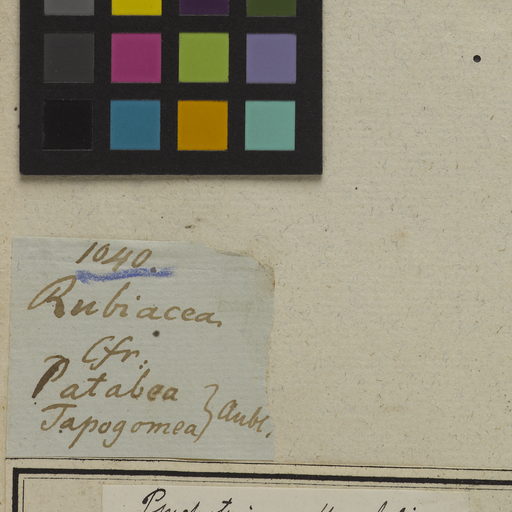 1040.
Rubiacea
Cfr.
Patabea
Tapogomea } Aubl.